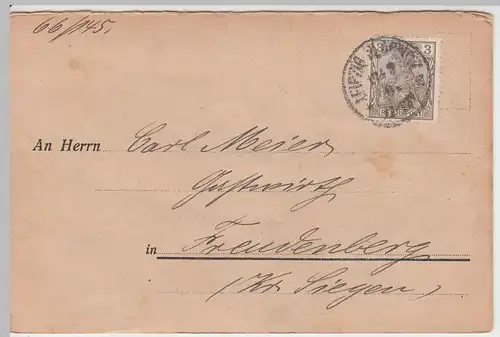 66/145.
3 3
LEIPZIG
REICHSPOST
An Herrn Carl Meier
Gastwirth
in Freudenberg
(Kr. Siegen)